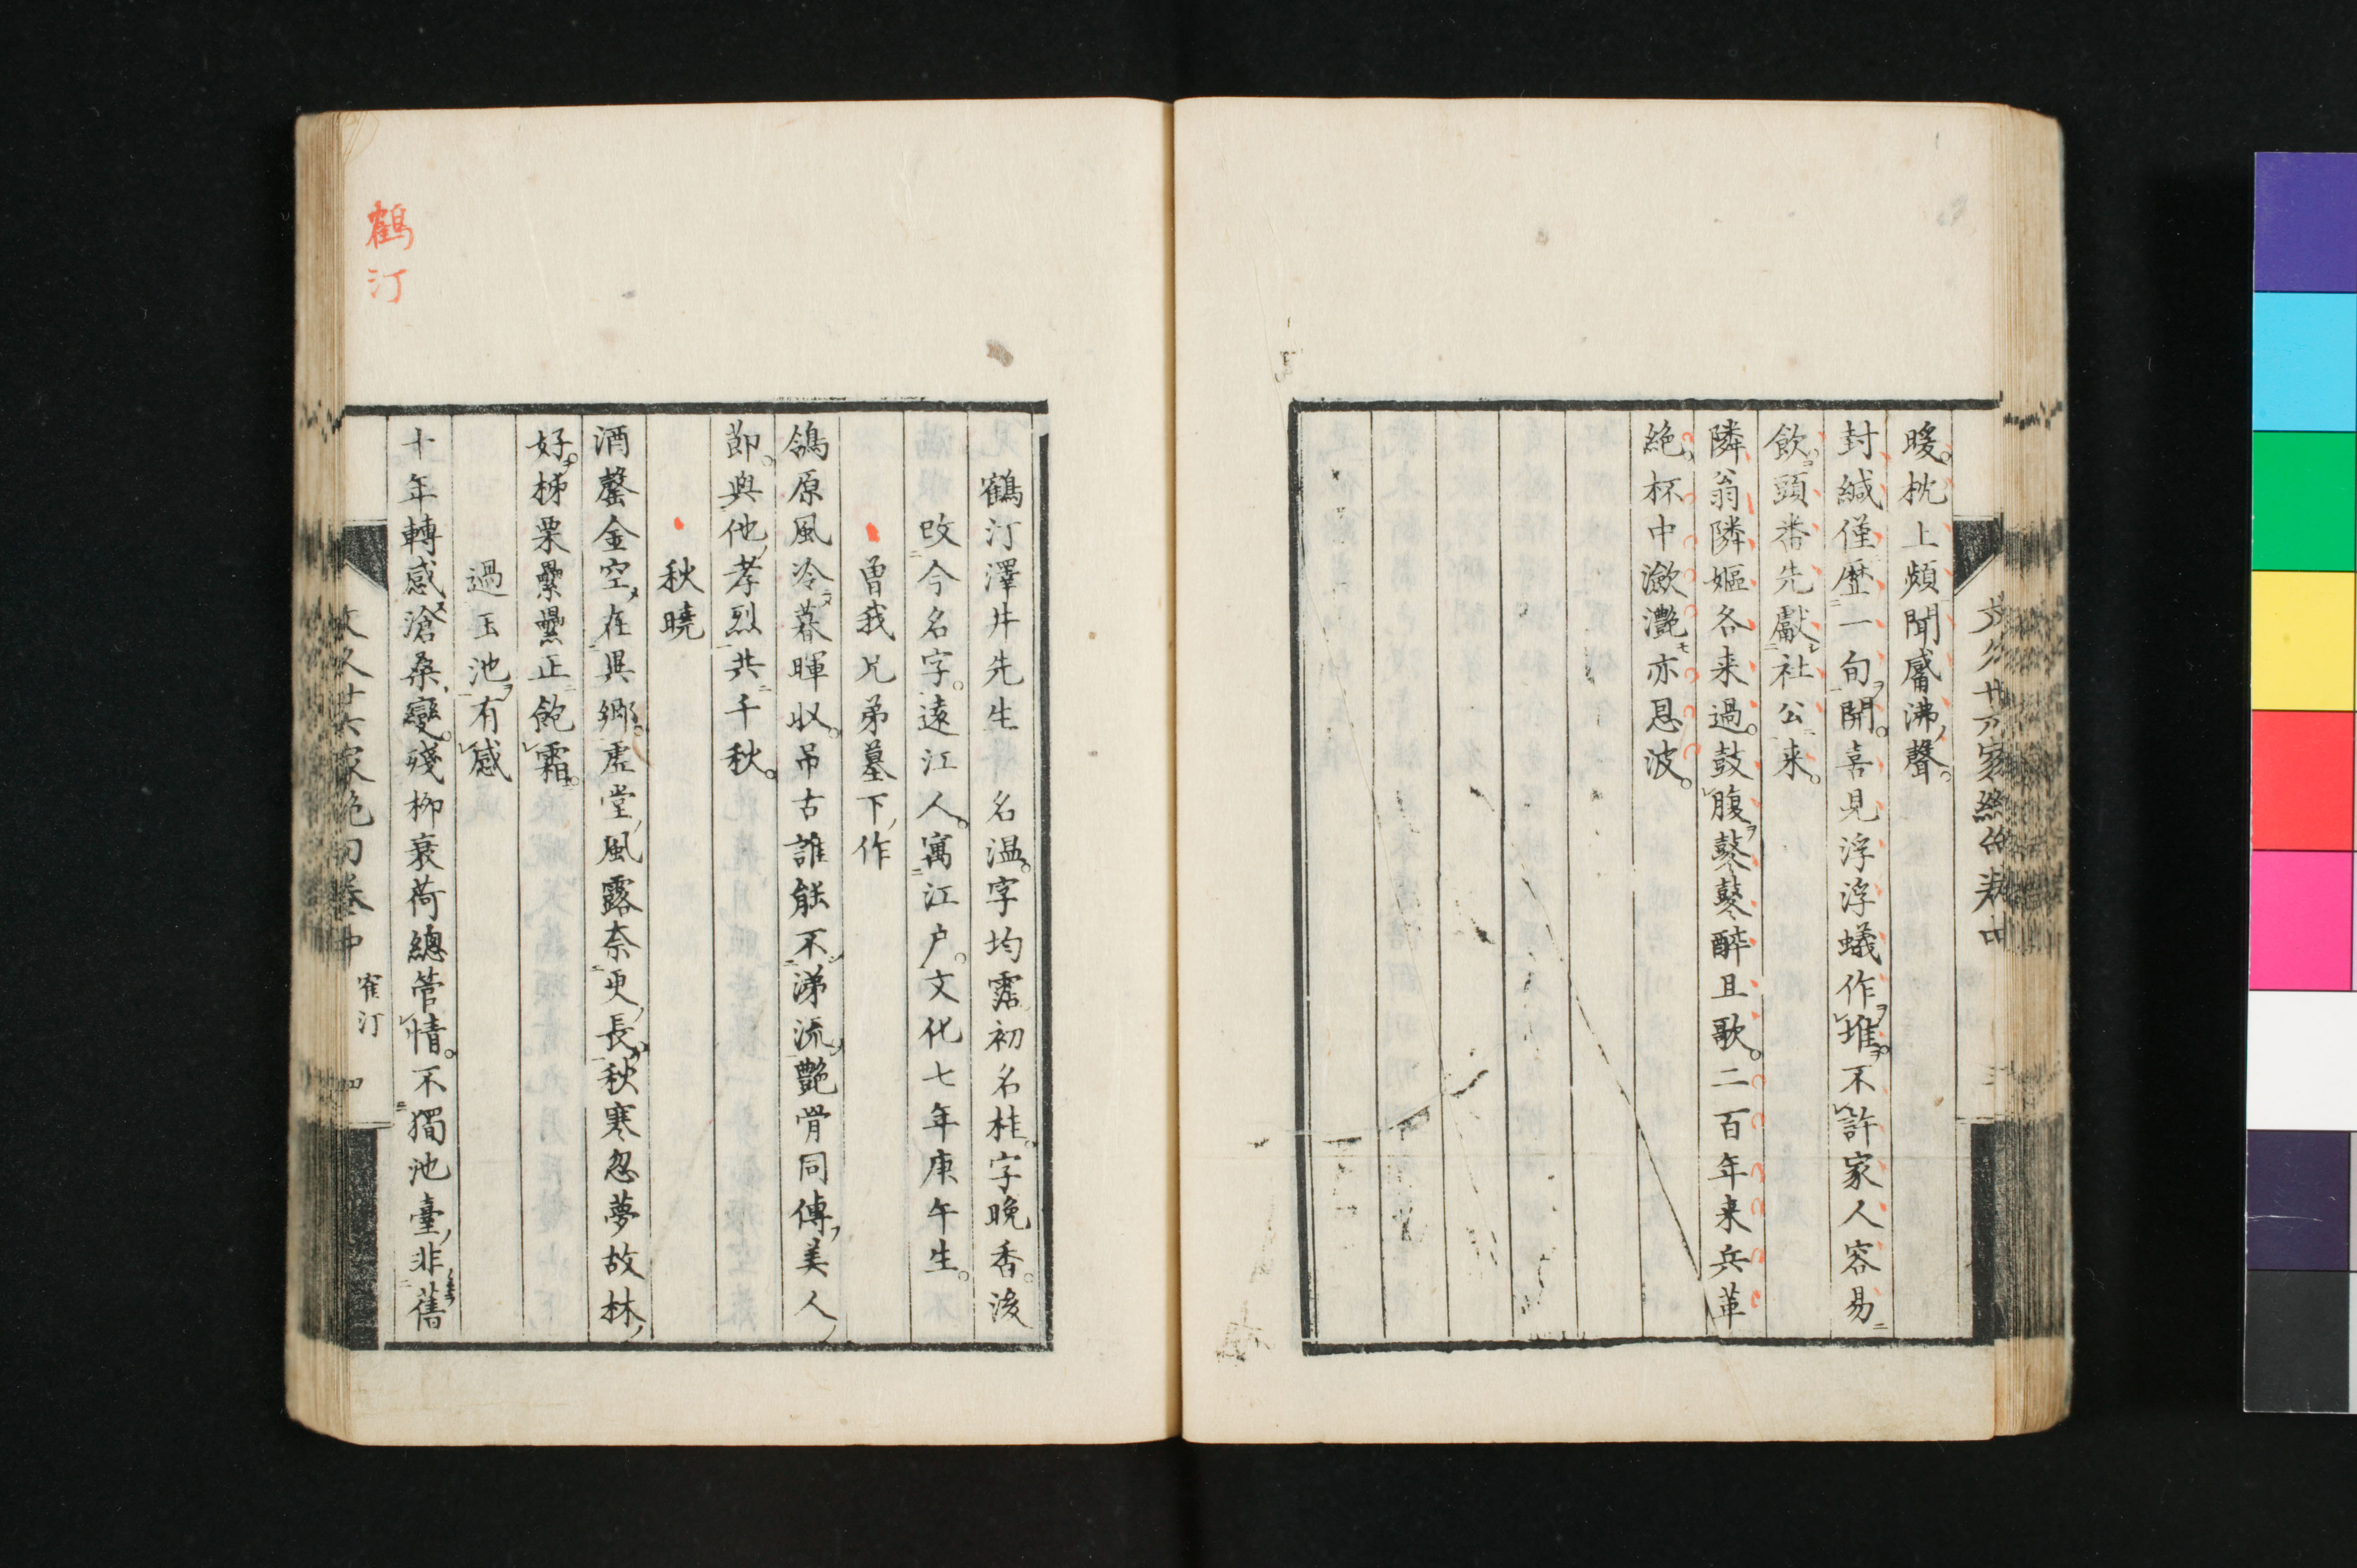 暖。枕上頻聞觱沸聲。
封緘僅歷一旬開。喜見浮浮蟻作堆。不許家人容易
飲。頭番先獻社公来。
隣翁隣嫗各来過。鼓腹鼕鼕醉且歌。二百年来兵革
絶。杯中瀲灧亦恩波。
鶴汀澤井先生 名温。字均 初名桂。字晚香。後
改今名字。遠江人。寓江户。文化七年庚午生。
曽我兄弟墓下作
鴒原風冷暮暉収。吊古誰能不涕流。艶骨同傳美人
節。與他孝烈共千秋。
秋曉
酒罄金空在異鄉。虚堂風露奈更長。秋寒忽夢故林
好。柹栗纍纍正飽霜。
過玉池有感
十年轉感滄桑變。殘柳衰荷總管情。不獨池臺非舊
文久廿六家絶句卷中 寉汀 四
鶴汀